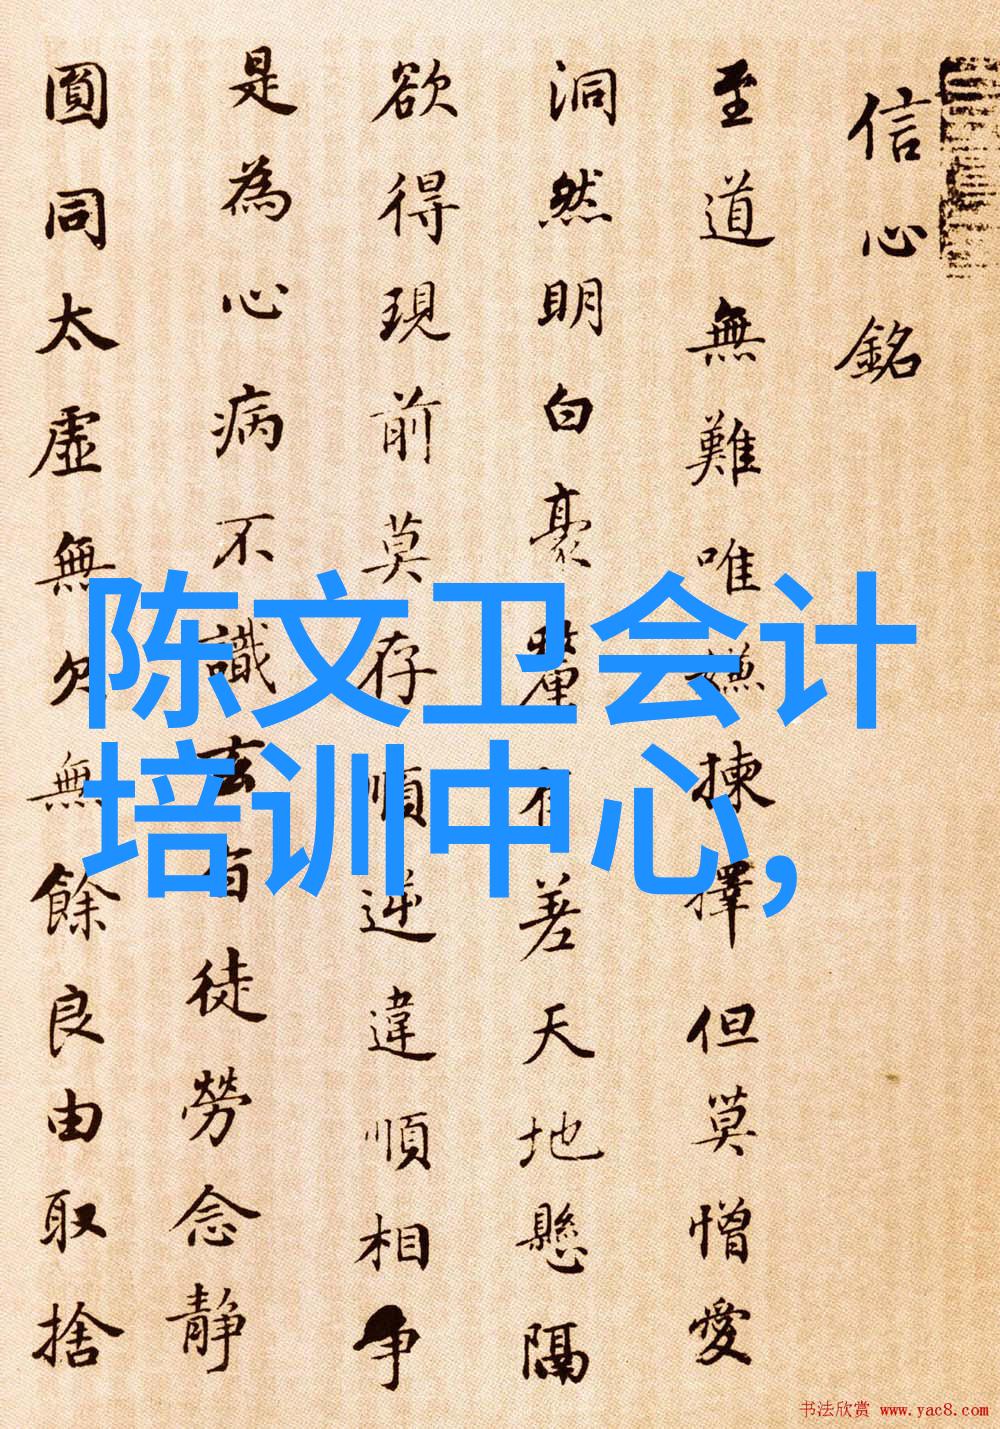 信心銘
至道無難唯嫌揀擇但莫憎愛
洞然明白豪釐有差天地懸隔
欲得現前莫存順逆違順相爭
是為心病不識玄旨徒勞念靜
圓同太虛無欠無餘良由取捨
陈文卫会计
培训中心,
书法欣赏 www.yac8.com